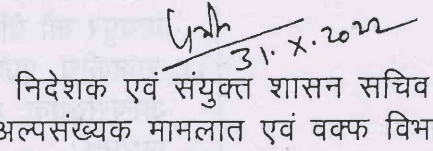 31.X.2022
निदेशक एवं संयुक्त शासन सचिव
अल्पसंख्यक मामलात एवं वक्फ विभ